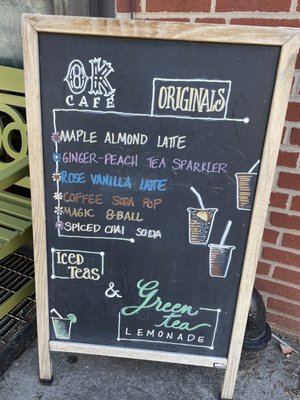 OK
CAFÉ
ORIGINALS
MAPLE ALMOND LATTE
GINGER-PEACH TEA SPARKLER
ROSE VANILLA LATTE
COFFEE SODA POP
MAGIC 8-BALL
SPICED CHAI SODA
ICED
TEAS
&
Green
tea
LEMONADE